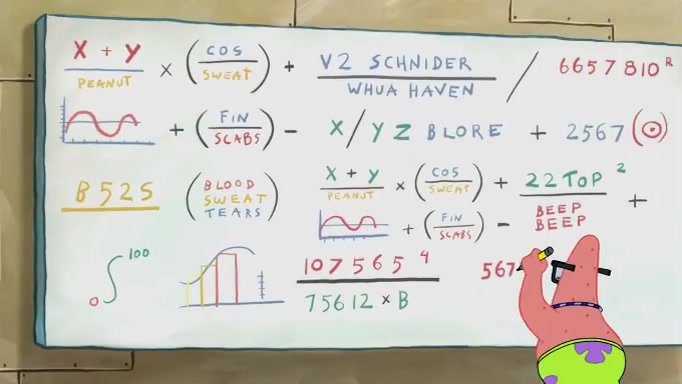 X + Y / PEANUT × (COS / SWEAT) + V2 SCHNIDER / WHUA HAVEN / 6657810ᴿ
+ (FIN / SCABS) − X/YZ BLORE + 2567 (⊙)
B 52S (BLOOD SWEAT TEARS)
X + Y / PEANUT × (COS / SWEAT) + 22 TOP² / BEEP BEEP +
+ (FIN / SCABS) −
∫ 0 100
107565⁴ / 75612 × B
567